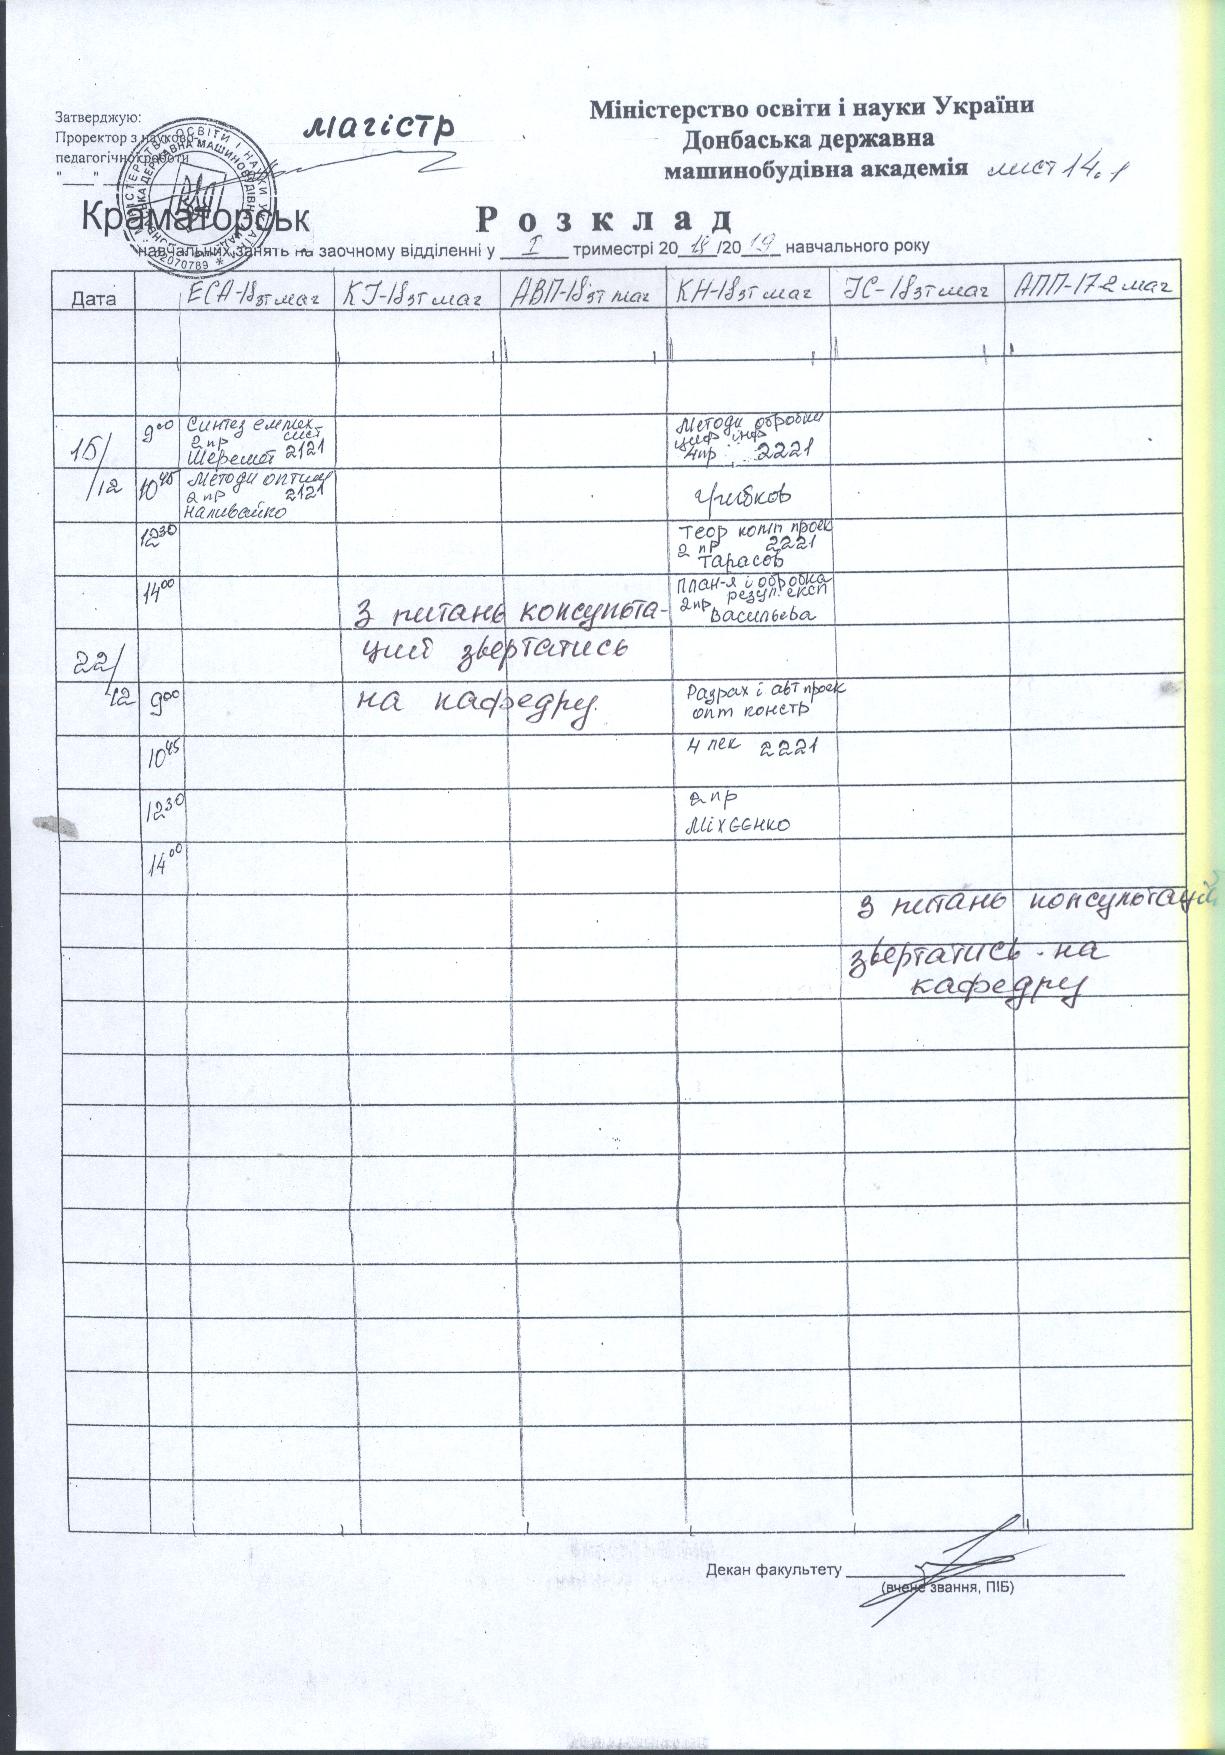 Затверджую:
Проректор з науково-
педагогічної роботи
"____"
магістр
Міністерство освіти і науки України
Донбаська державна
машинобудівна академія лист 14.1
Краматорськ
Розклад
навчальних занять на заочному відділенні у I триместрі 2018/2019 навчального року
Дата ЕСА-18зт маг КІ-18зт маг АВП-18зт маг КН-18зт маг ІС-18зт маг АПП-17-2 маг
15/12
9⁰⁰ Синтез ел мех
сист
2 пр
Шеремет 2121
Методи обробки
циф інф
4пр 2221
10⁴⁵ Методи оптим
2 пр 2121
Наливайко
Грибков
12³⁰ Теор комп проек
2 пр 2221
Тарасов
14⁰⁰ План-я і обробка
резул. експ
2пр
Васильєва
З питань консульта-
ций звертатись
на кафедру.
22/12
9⁰⁰ Разрах і авт проек
опт констр
10⁴⁵ 4 лек 2221
12³⁰ 2 пр
Міхєєнко
14⁰⁰
З питань консультацій
звертатись на
кафедру
Декан факультету
(вчене звання, ПІБ)